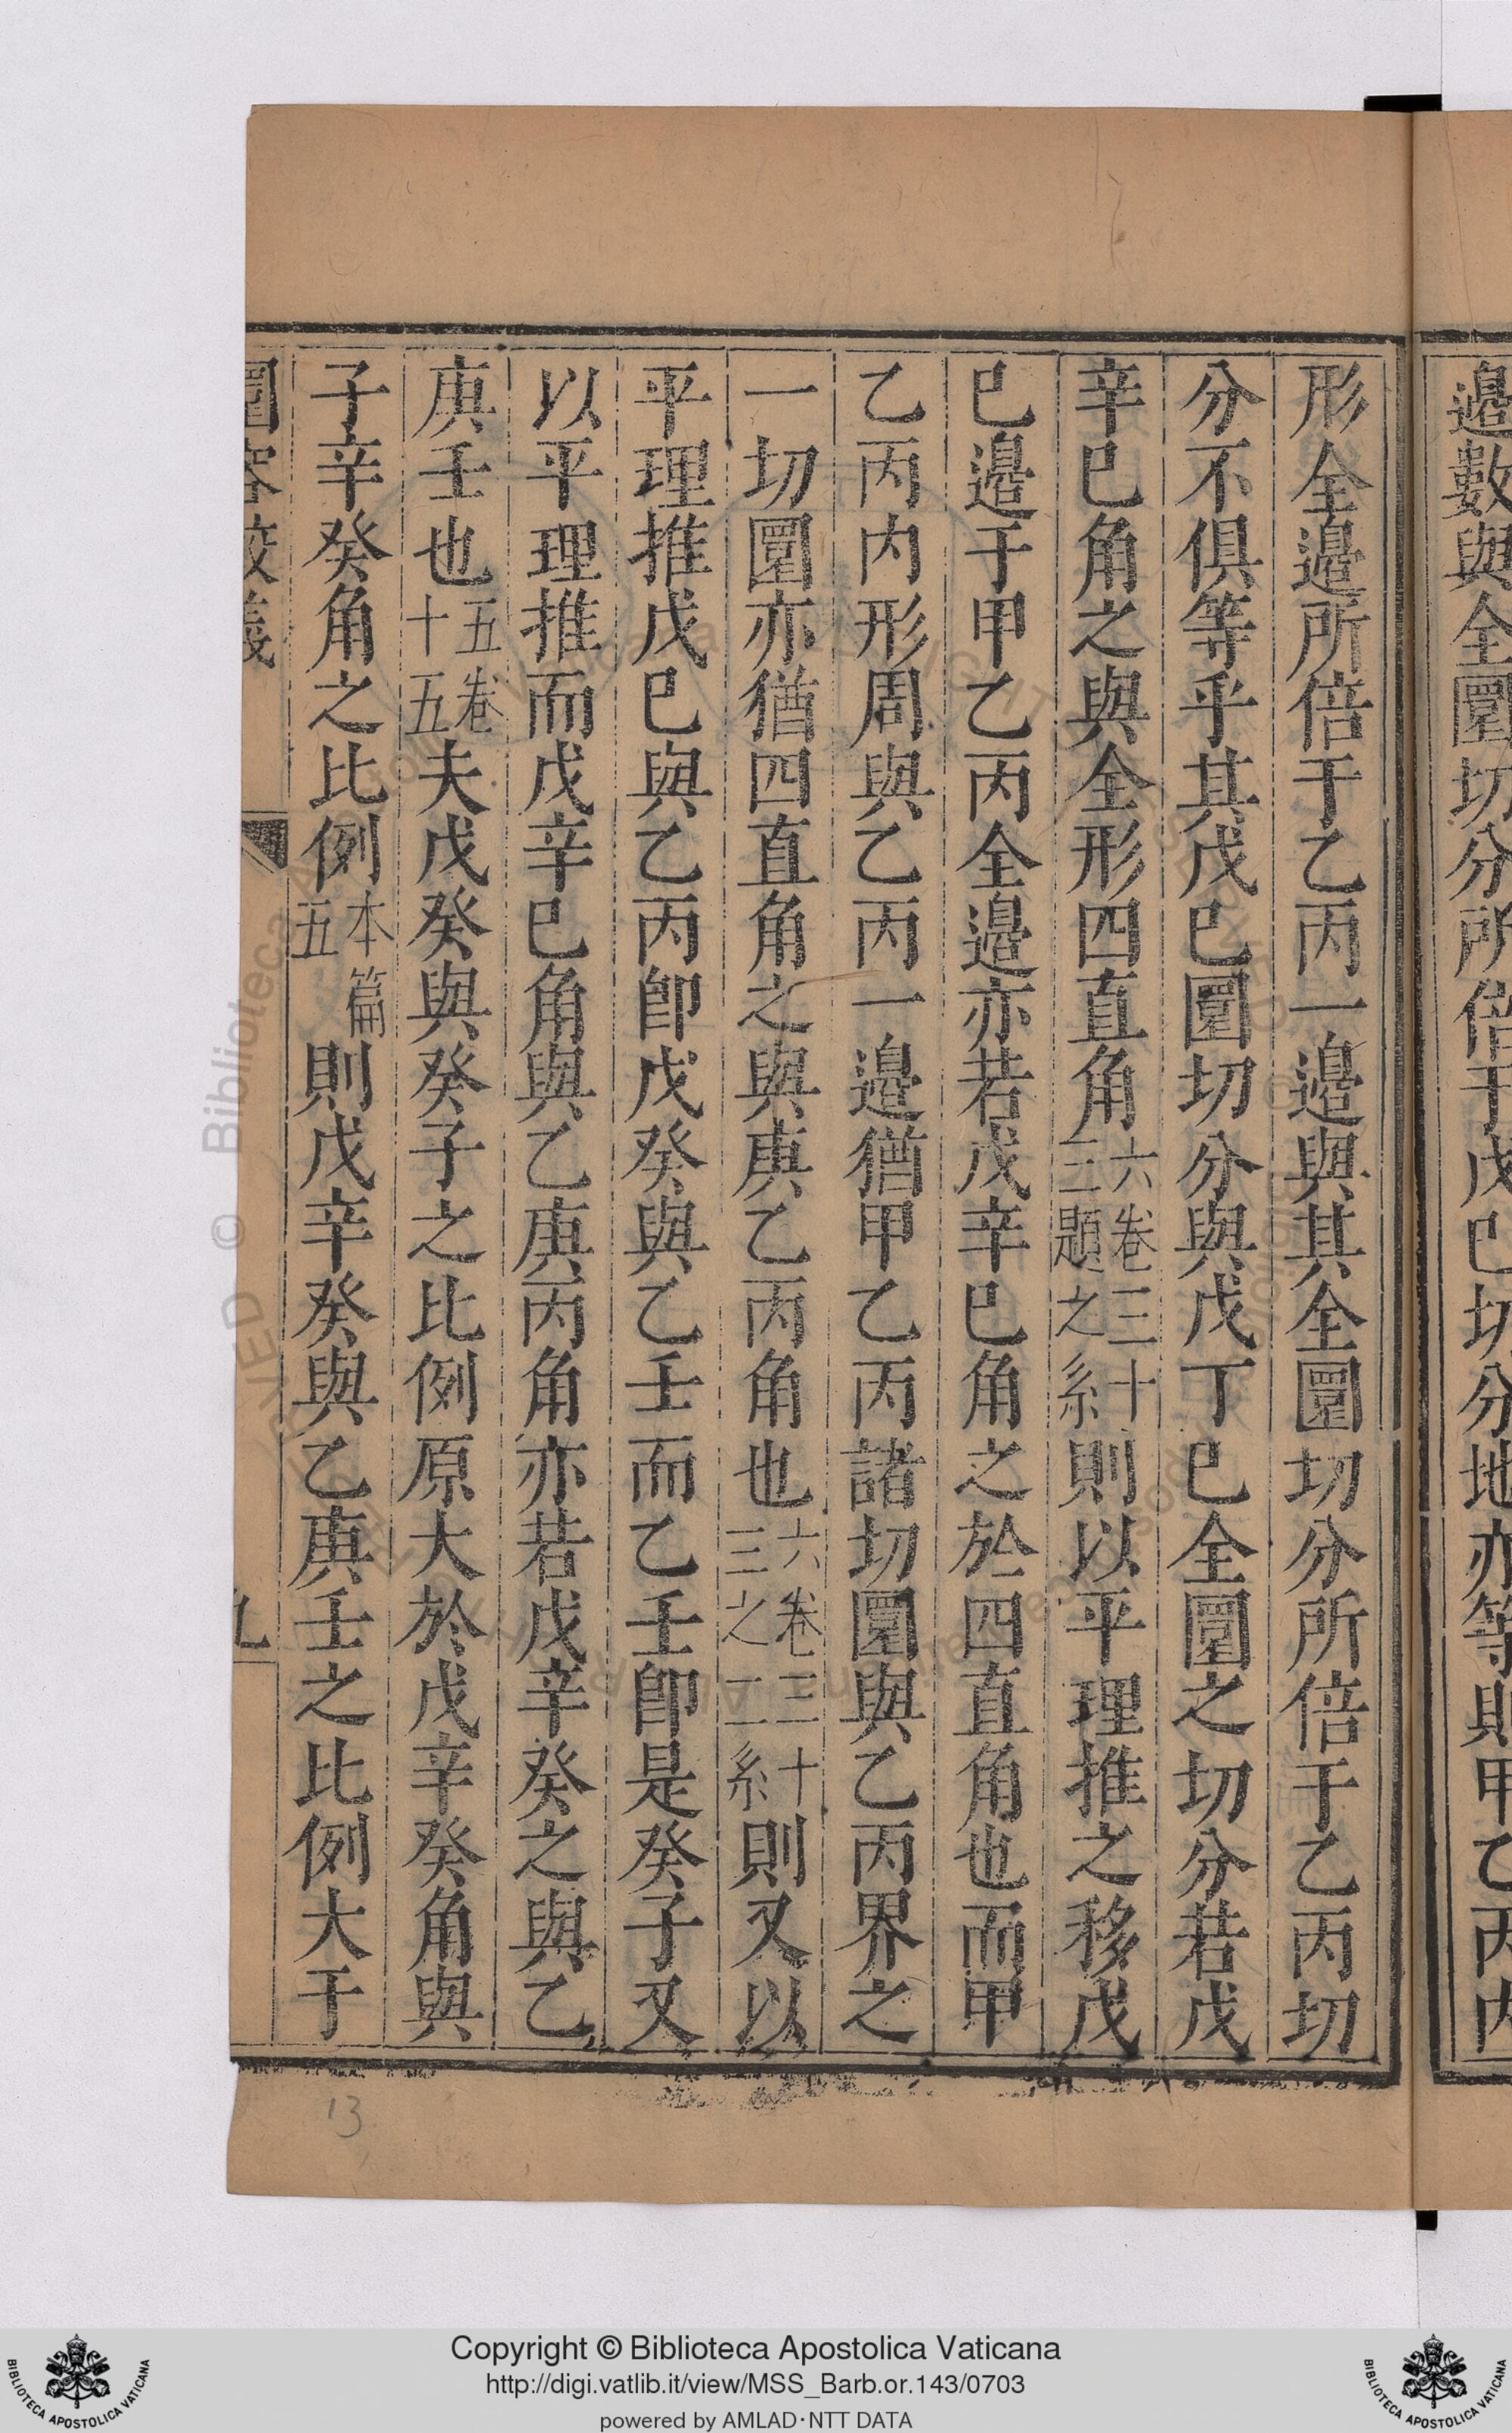 邉數與全圜切分所倍于戊巳切分地亦等則甲乙丙内
形全邉所倍于乙丙一邉與其全圜切分所倍于乙丙切
分不俱等乎其戊巳圜切分與戊丁巳全圜之切分若戊
辛巳角之與全形四直角六卷三十三題之系則以平理推之移戊
巳邉于甲乙丙全邉亦若戊辛巳角之於四直角也而甲
乙丙内形周與乙丙一邉猶甲乙丙諸切圜與乙丙界之
一切圜亦猶四直角之與庚乙丙角也六卷三十三之二系則又以
平理推戊巳與乙丙卽戊癸與乙壬而乙壬卽是癸子又
以平理推而戊辛巳角與乙庚丙角亦若戊辛癸之與乙
庚壬也五卷十五夫戊癸與癸子之比例原大於戊辛癸角與
子辛癸角之比例本篇五則戊辛癸與乙庚壬之比例大于
圜容較義
九
13
Copyright © Biblioteca Apostolica Vaticana
http://digi.vatlib.it/view/MSS_Barb.or.143/0703
powered by AMLAD·NTT DATA
BIBLIOTECA APOSTOLICA VATICANA
BIBLIOTECA APOSTOLICA VATICANA